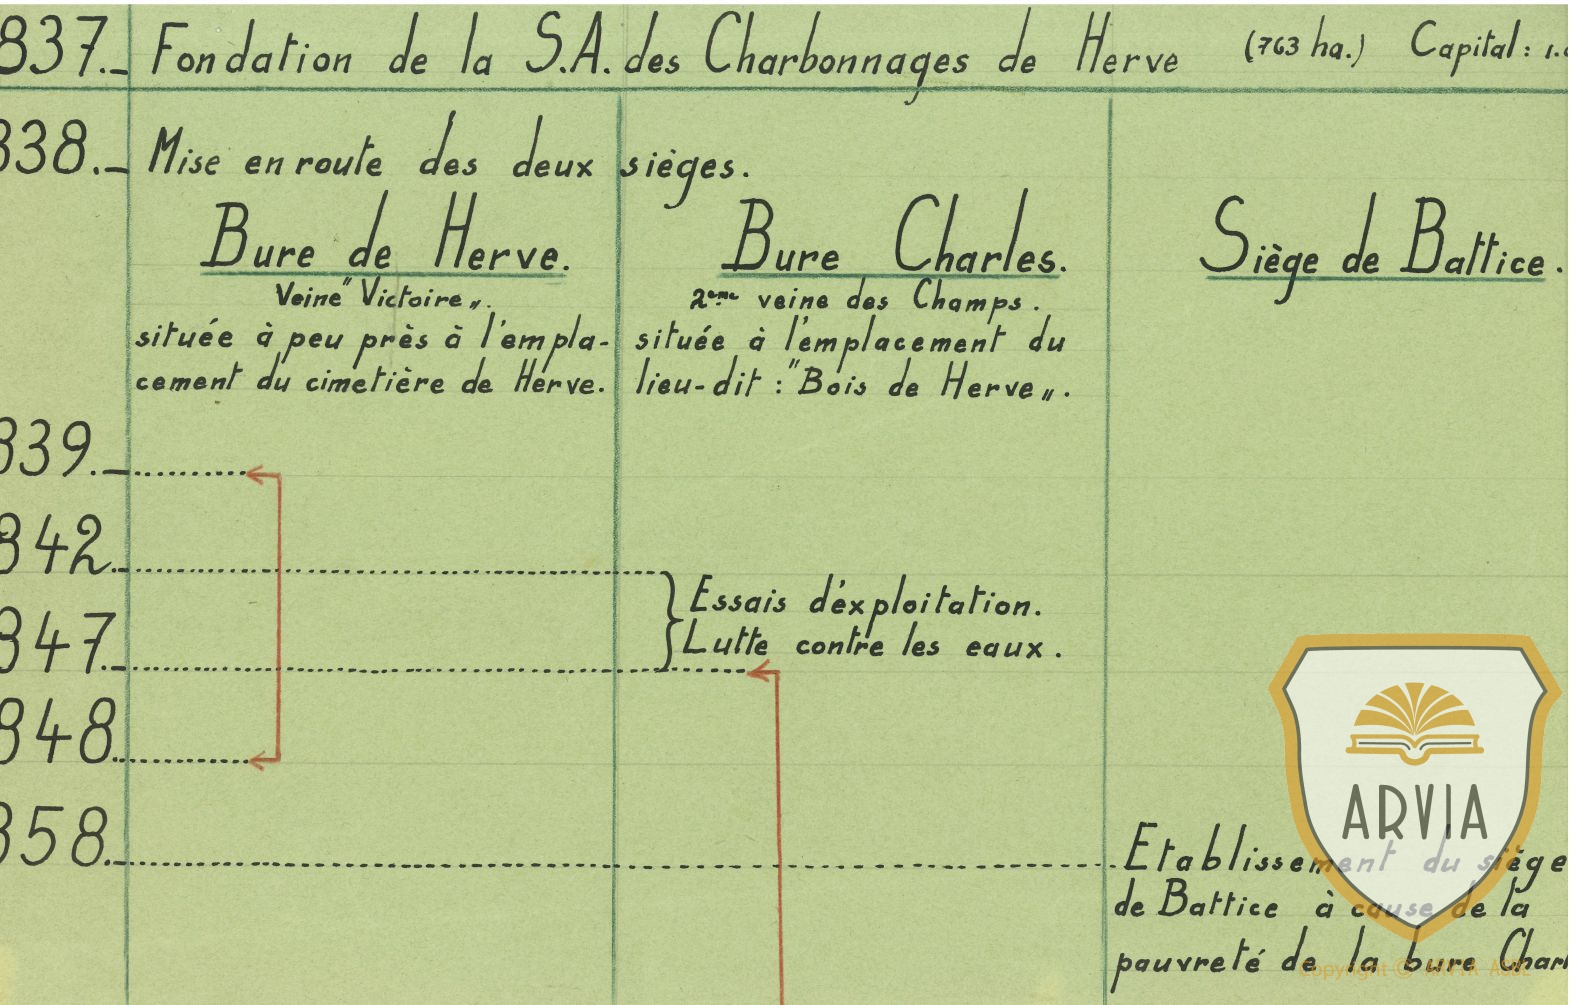 837._ Fondation de la S.A. des Charbonnages de Herve (763 ha.) Capital : 1.
838._ Mise en route des deux sièges.
Bure de Herve. Bure Charles. Siège de Battice.
Veine "Victoire„. 2eme veine des Champs.
située à peu près à l'empla- située à l'emplacement du
cement du cimetière de Herve. lieu-dit : "Bois de Herve„.
839._
842._
Essais d'exploitation.
847._ Lutte contre les eaux.
848._
ARVIA
858._ Etablissement du siège
de Battice à cause de la
pauvreté de la bure Charl
Copyright © ARVIA ASBL